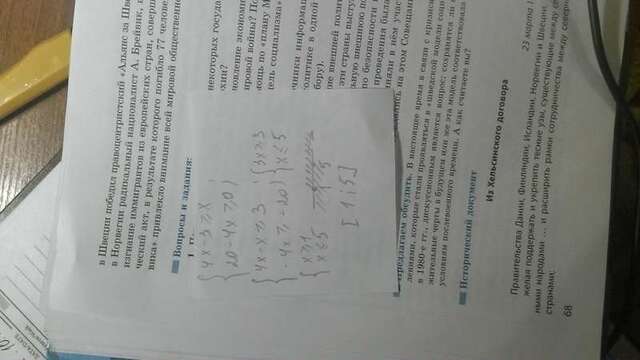 ДАТА/DATE
в Швеции победил правоцентристский «Альянс за Шве
в Норвегии радикальный националист А. Брейвик,
изгнание иммигрантов из европейских стран, соверш
ческий акт, в результате которого погибло 77 челове
вика» привлекло внимание всей мировой общественно
Вопросы и задания:
некоторых госуда
4x-3≥x
20-4x≥0
новление экономи
мировой войны? По
4x-x≥3
-4x≥-20
3x≥3
x≤5
мощь по «плану М
тель социализма»
x≥1
x≤5
1 5
[1;5]
чники информа
олитике в одной
бору).
ие внешней полит
эти страны выступ
льную внешнюю по
по безопасности и
проведения были
инали в нём участ
на этом Совещан
Предлагаем обсудить. В настоящее время в связи с кризисн
лениями, которые стали проявляться в «шведской модели социа
в 1980-е гг., дискуссионным является вопрос: сохранятся ли
жительные черты в будущем или же эта модель соответствовала
условиям послевоенного времени. А как считаете вы?
Исторический документ
Из Хельсинского договора
23 марта 1
Правительства Дании, Финляндии, Исландии, Норвегии и Швеции,
желая поддержать и укрепить тесные узы, существующие между
ными народами ... и расширить рамки сотрудничества между северн
странами;
68